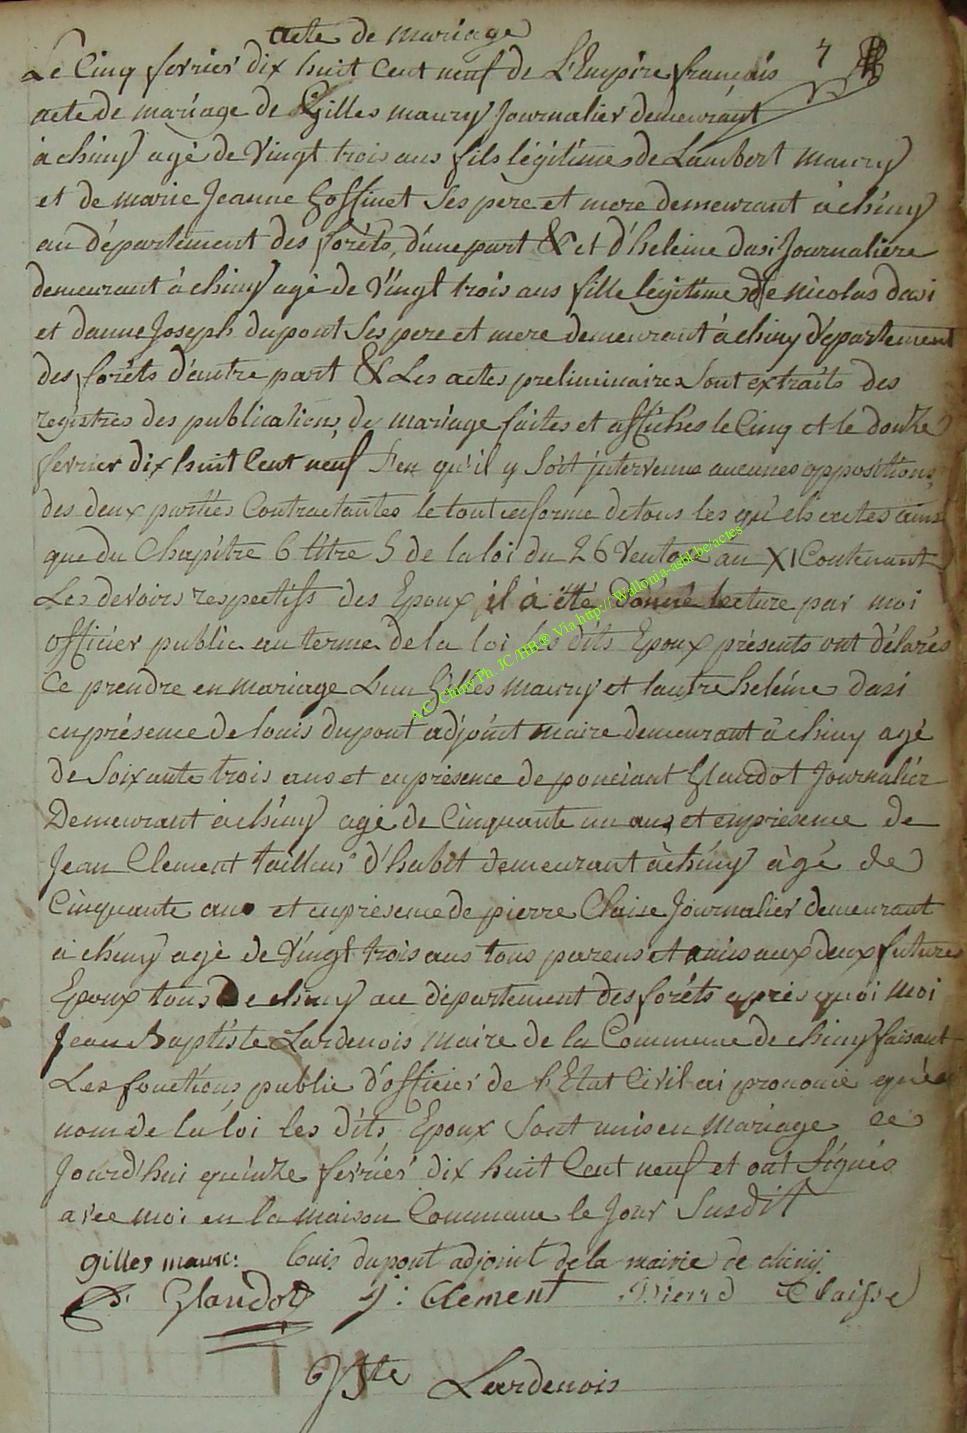 acte de mariage
Le Cinq fevrier dix huit Cent neuf de L'Empire français 4
acte de mariage de Gilles maury Journalier demeurant
à chiny agé de Vingt trois ans fils légitime de Lambert maury
et de marie Jeanne Goffinet Ses pere et mere demeurant à chiny
au département des forêts, d'une part & et d'heleine dasi Journaliere
demeurant à chiny agé de Vingt trois ans fille légitime de nicolas dasi
et danne Joseph dupont Ses pere et mere demeurant à chiny département
des forêts d'autre part & Les actes preliminaires Sont extraits des
registres des publications de mariage faites et affichés le Cinq et le douze
fevrier dix huit Cent neuf S'en qu'il y Soit intervenue aucunes oppositions
des deux parties Contractantes le tout enforme de tous les qu'els actes ainsi
que du Chapitre 6 titre 5 de la loi du 26 Ventose an XI Contenant
Les devoirs respectifs des Epoux il à été donné lecture par moi
officier public au terme de la loi les dits Epoux présents ont délarés
Ce prendre en mariage L'un Gilles maury et lautre heleine dasi
en présence de louis dupont adjoint maire demeurant à chiny agé
de Soixante trois ans et en présence de ponciant Glaudot Journalier
Demeurant à chiny agé de Cinquante un ans et en présence de
Jean Clement tailleur d'habit demeurant à chiny àgé de
Cinquante ans et en présence de pierre Claise Journalier demeurant
à chiny agé de Vingt trois ans tous parens et amis aux deux futures
Epoux tous De chiny au département des forêts après quoi moi
Jean Baptiste Lardenois maire de la Commune de chiny faisant
Les fonctions public d'officier de l'Etat Civil ai prononcé qu'au
nom de la loi les dits Epoux Sont unis en Mariage ce
Jourd'hui quinze fevrier dix huit Cent neuf et ont Signés
avec moi en la maison Commune le Jour Susdit
gilles mauri: Louis dupont adjoint de la mairie de chiny
P. Glaudot J: Clement Pierre Claisse
JBte Lardenois
A.C. Chiny Ph. JC/HB® Via http://Wallonia-asbl.be/actes